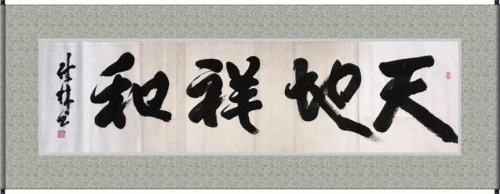 天地祥和